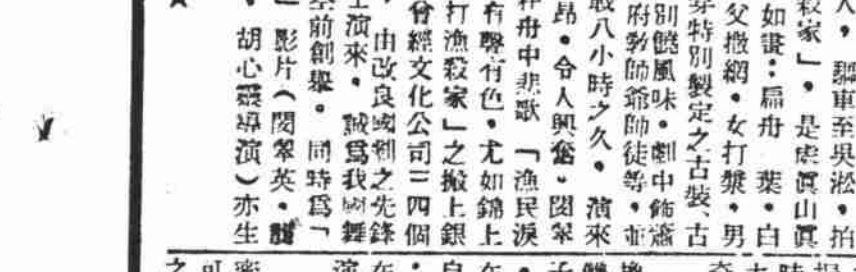 人，驅車至吳淞，拍
殺家」，是虛眞山眞
如畫：扁舟一葉，白
父撒網，女打槳，男
穿特別製定之古裝、古
別饒風味。劇中飾蕭
府敎師爺師徒等，並
戰八小時之久。演來
昂，令人興奮。閔翠
舟中悲歌「漁民淚
有聲有色，尤如錦上
打漁殺家」之搬上銀
曾經文化公司三四個
，由改良國劇之先鋒
演來，誠爲我國舞
空前創舉。同時爲「
」影片（閔翠英，
，胡心靈導演）亦生